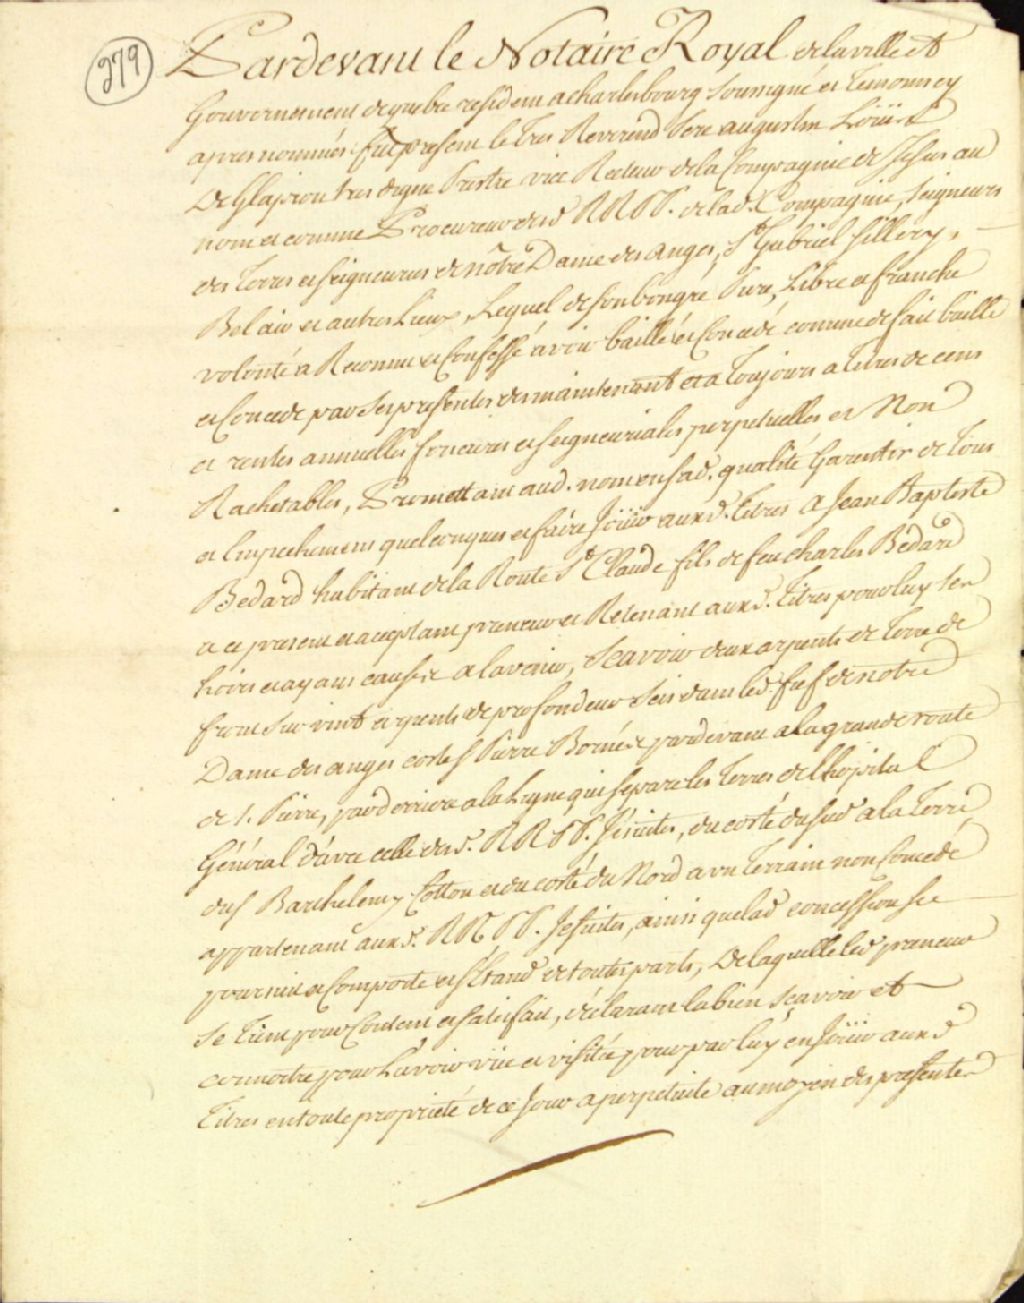 279
Pardevant le Notaire Royal de la ville et
Gouvernement de quebec resident a charlesbourg soussigné et Temoins cy
apres nommés fut present le Tres Reverend Pere augustin Loüis
De Glapion tres digne Prestre vice Recteur de la Compagnie de Jesus au
nom et comme Procureur des d RRPP. de lad. Compagnie, seigneurs
des Terres et seigneuries de nôtre Dame des anges, St Gabriel sillery,
Bel air et autres Lieux, Lequel de son bon gré Pure, Libre et franche
volonté a Reconnu et confessé avoir baillé et concedé comme de fait baille
et concede par ses presentes des maintenant et a Toujours a titres de cens
et rentes annuelles foncieres et seigneuriales perpetuelles et Non
Rachetables, Promettant aud. nom en sad. qualité Garentir de Tous
et Empechemens quelconques et faire Joüir auxd. Titres a Jean Baptiste
Bedard habitant de la Route St Claude fils de feu charles Bedard
a ce present et acceptant preneur et Retenant auxd. Titres pour luy ses
hoirs et ayans cause a lavenir, Scavoir deux arpents de Terre de
front sur vint arpents de profondeur scis dans led. fief de notre
Dame des anges coste St Pierre Bornée pardevant a la grande route
de S. Pierre, par derriere a la Ligne qui separe les Terres de Lhôpital
Général d'avec celle desd. RRPP. Jesuites, du costé du sud a la Terre
du S Barthelemy Cotton et du costé du Nord a un Terrain non Concedé
appartenant auxd. RRPP. Jesuites, ainsi que lad concession se
poursuit et comporte et s'Etend de toutes parts, De laquelle led preneur
se Tient pour Content et satisfait, déclarant la bien sçavoir et
connoitre pour L'avoir vüe et visitée pour par luy en Joüir auxd
Titres en toute propriété de ce Jour a perpetuité au moyen des presentes